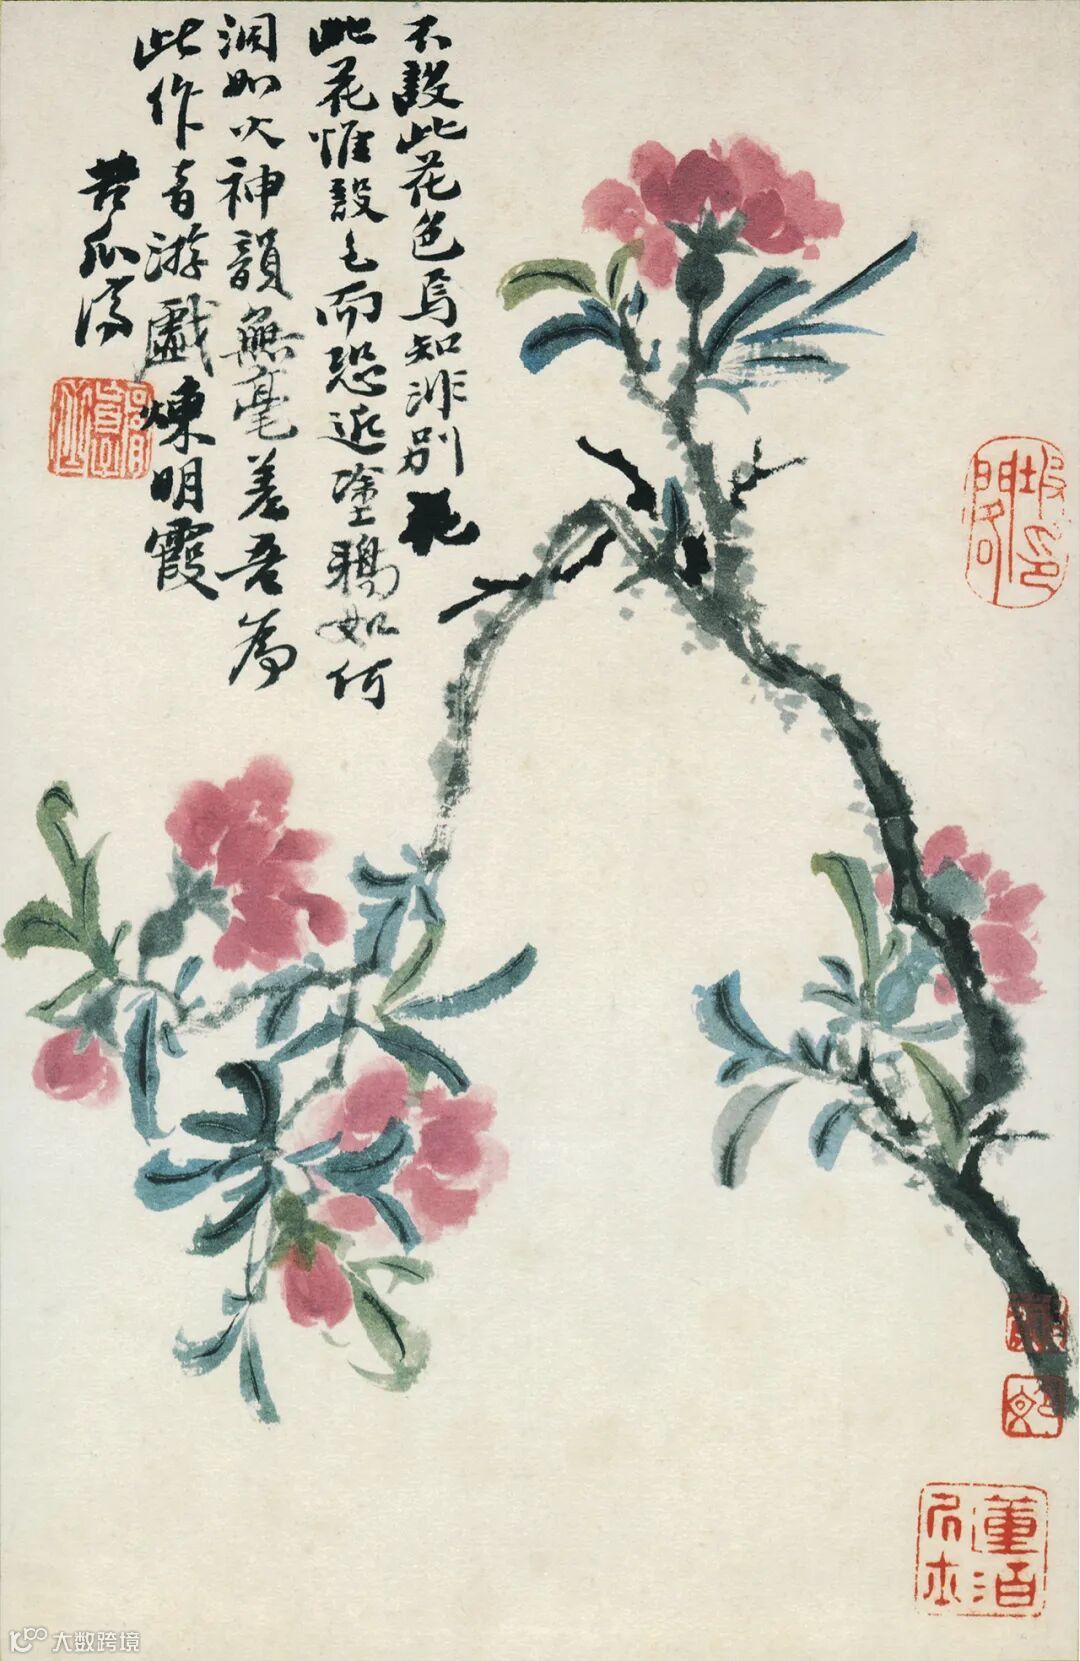 不設此花色焉知非別花
此花惟設色而恐近塗鴉如何
洞如火神韻無毫差吾為
此作音游戲煉明霞
苦瓜濟
大数跨境